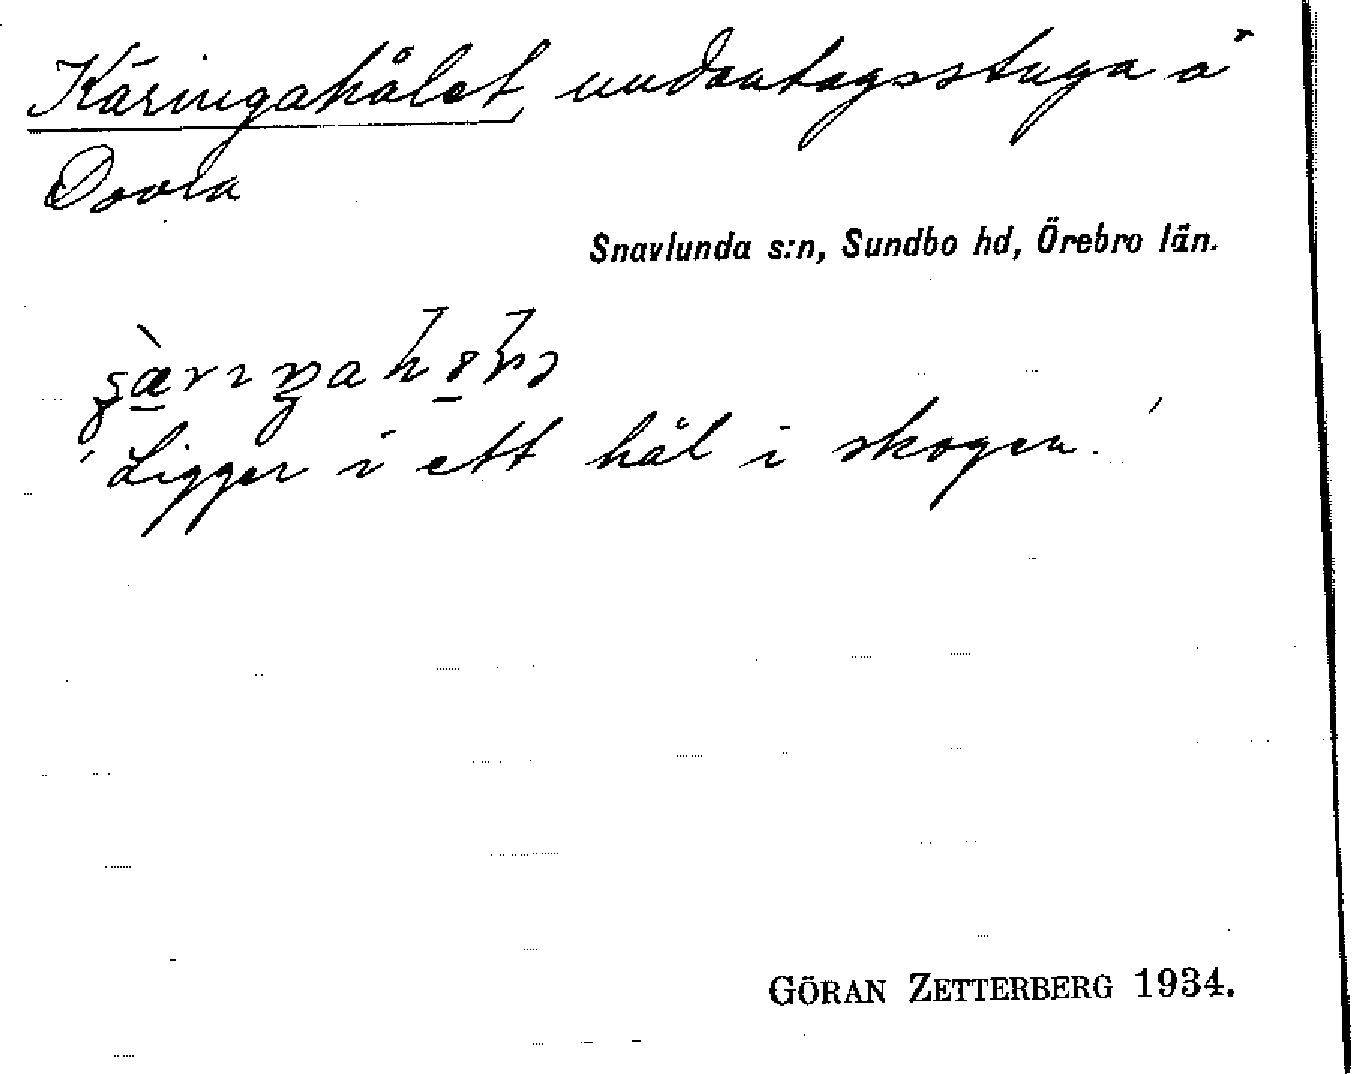 Käringahålet, undantagsstuga å
Snavlunda s:n, Sundbo hd, Örebro län.
'Ligger i ett hål i skogen.'
GÖRAN ZETTERBERG 1934.